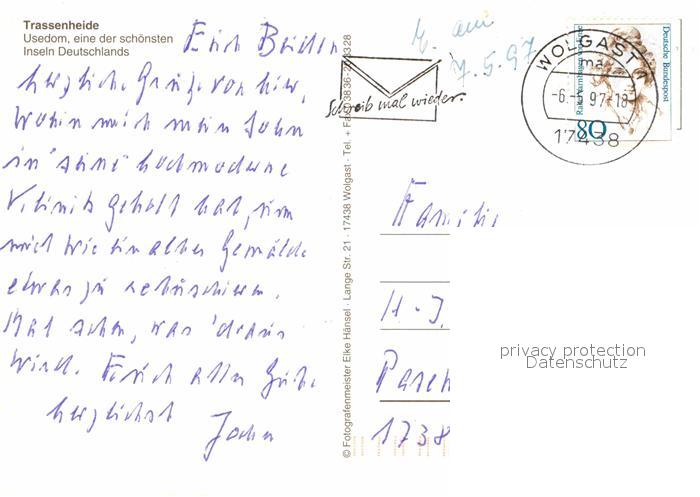 Trassenheide
Usedom, eine der schönsten
Inseln Deutschlands
Euch Beiden
herzliche Grüße von hier,
wohin mich mein Sohn
in "seine" hochmoderne
Klinik geholt hat, um
mich wie ein altes Gemälde
etwas zu retuschieren.
Mal sehn, was 'draus
wird. Euch alles Gute
herzlichst
John
© Fotografenmeister Eike Hänsel · Lange Str. 21 · 17438 Wolgast · Tel. + Fax
E. am
7.5.97
Schreib mal wieder.
WOLGAST 1
ma
-6.-5.97-18
17438
Deutsche Bundespost
80
Familie
H.-J.
Pasen
1738
privacy protection
Datenschutz